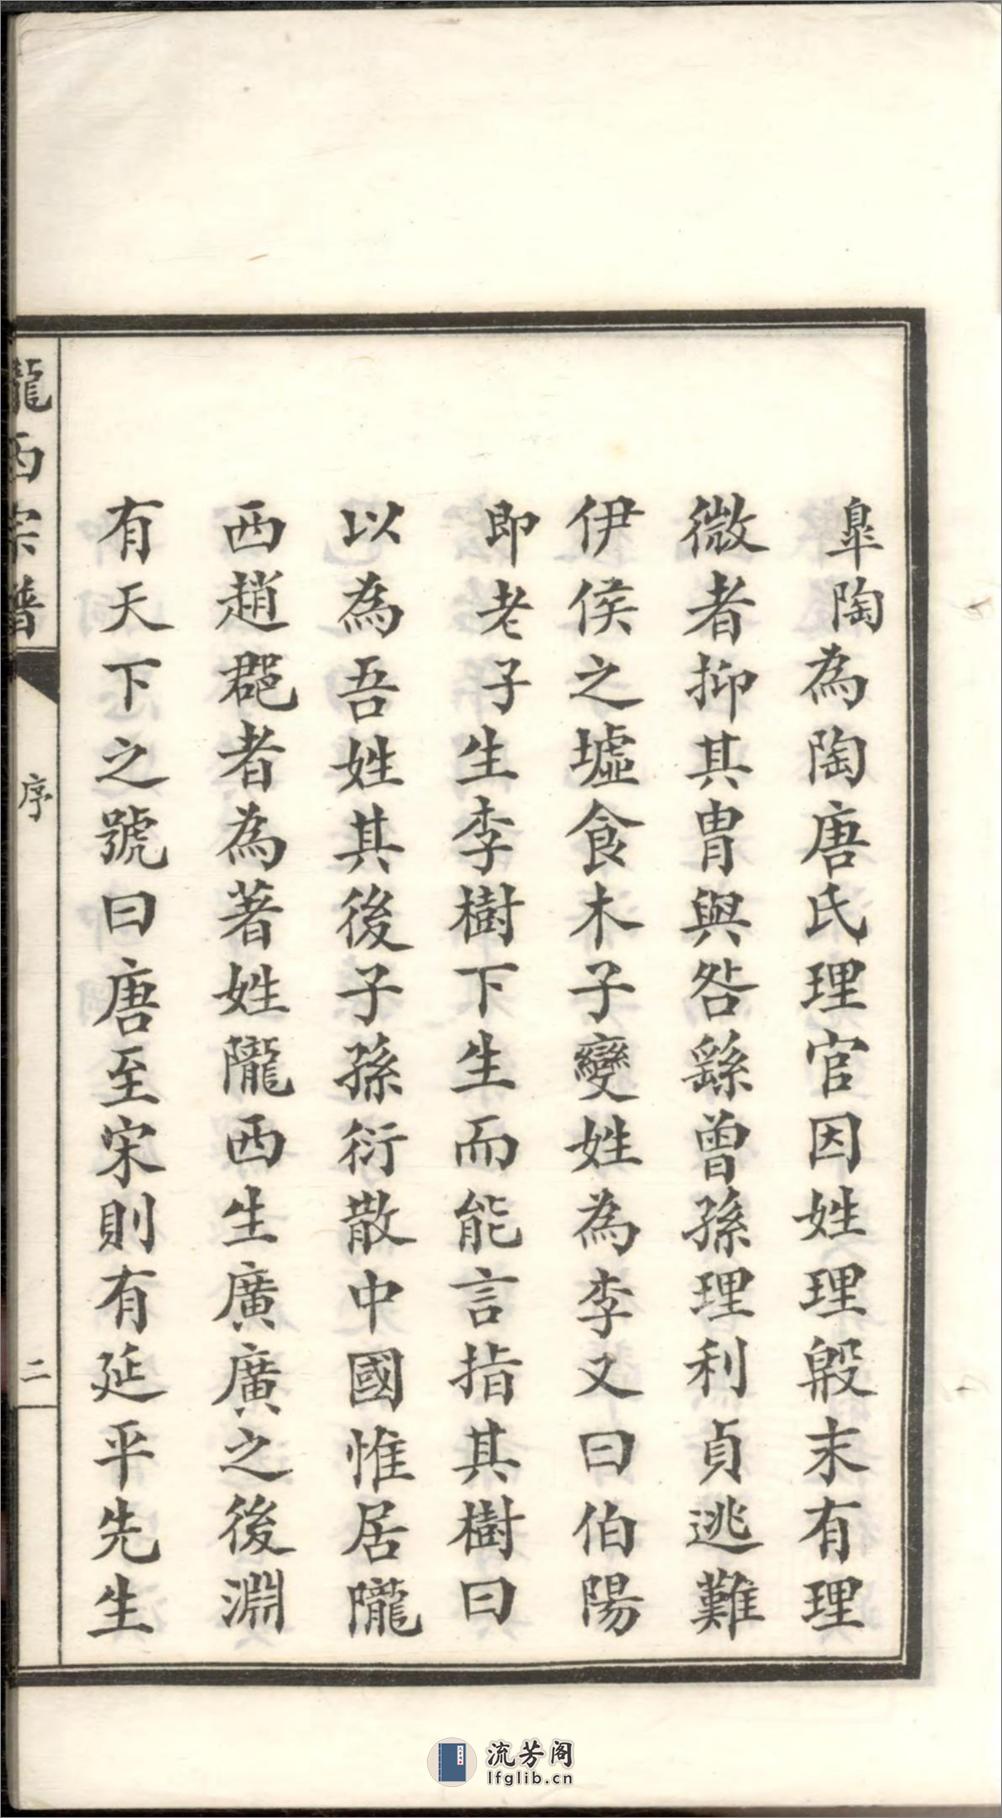 皐陶為陶唐氏理官因姓理殷末有理
微者抑其胄與咎繇曾孫理利貞逃難
伊侯之墟食木子變姓為李又曰伯陽
即老子生李樹下生而能言指其樹曰
以為吾姓其後子孫衍散中國惟居隴
西趙郡者為著姓隴西生廣廣之後淵
有天下之號曰唐至宋則有延平先生
隴西宗譜
序
二
流芳阁
lfglib.cn